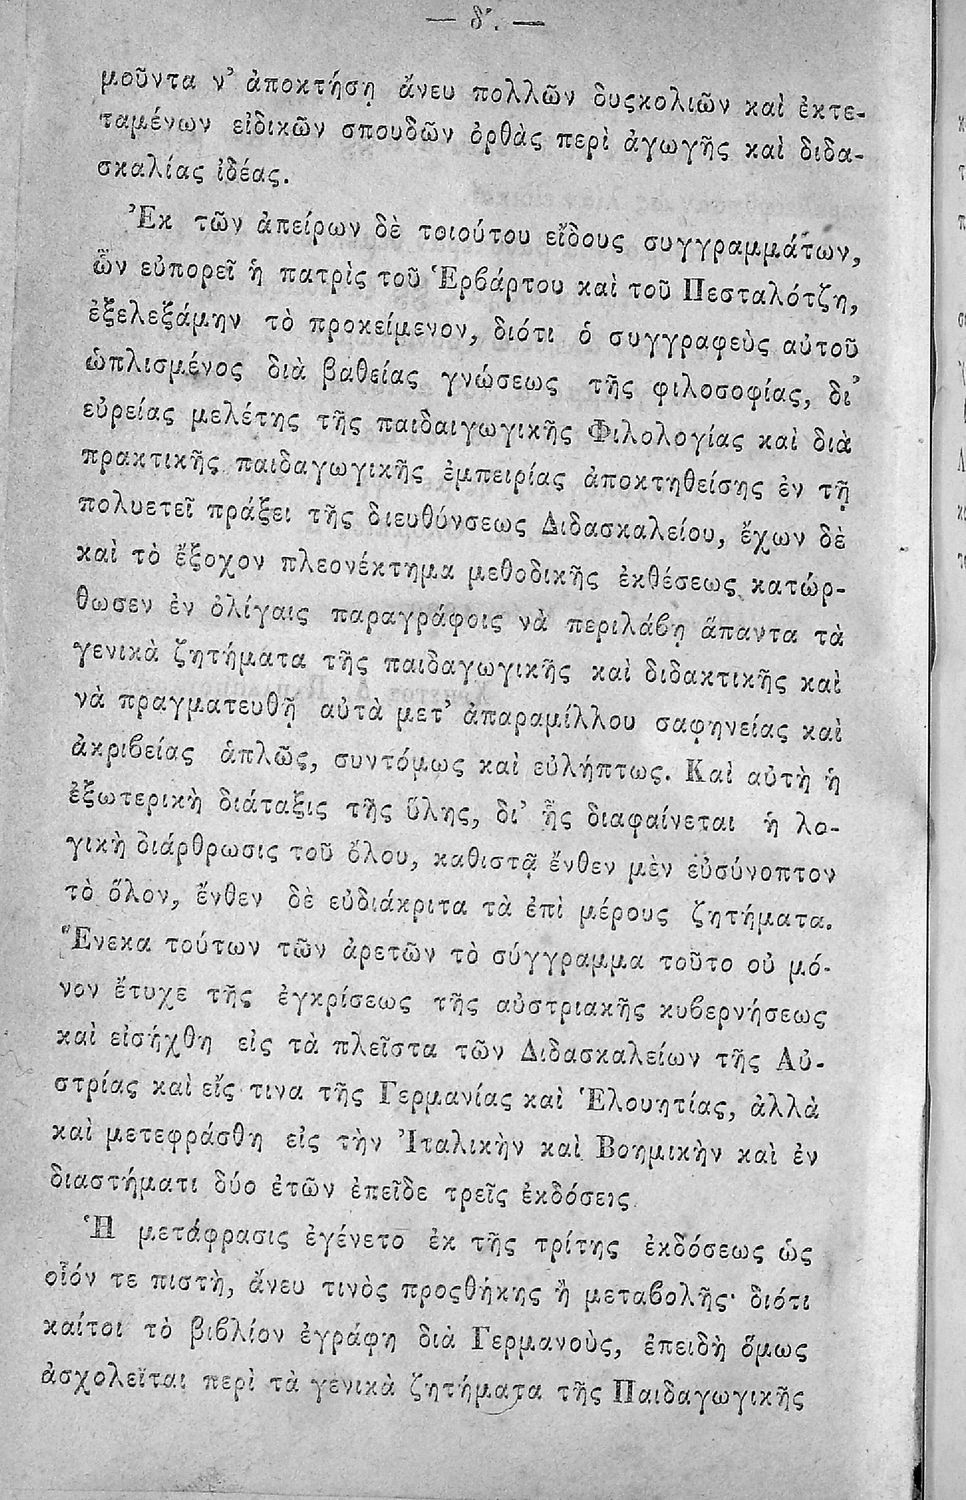 — δ'. —
μοῦντα ν' ἀποκτήσῃ ἄνευ πολλῶν δυςκολιῶν καὶ ἐκτε-
ταμένων εἰδικῶν σπουδῶν ὀρθὰς περὶ ἀγωγῆς καὶ διδα-
σκαλίας ἰδέας.
Ἐκ τῶν ἀπείρων δὲ τοιούτου εἴδους συγγραμμάτων,
ὧν εὐπορεῖ ἡ πατρὶς τοῦ Ἑρβάρτου καὶ τοῦ Πεσταλότζη,
ἐξελεξάμην τὸ προκείμενον, διότι ὁ συγγραφεὺς αὐτοῦ
ὡπλισμένος διὰ βαθείας γνώσεως τῆς φιλοσοφίας, δι'
εὐρείας μελέτης τῆς παιδαιγωγικῆς Φιλολογίας καὶ διὰ
πρακτικῆς παιδαγωγικῆς ἐμπειρίας ἀποκτηθείσης ἐν τῇ
πολυετεῖ πράξει τῆς διευθύνσεως Διδασκαλείου, ἔχων δὲ
καὶ τὸ ἔξοχον πλεονέκτημα μεθοδικῆς ἐκθέσεως κατώρ-
θωσεν ἐν ὀλίγαις παραγράφοις νὰ περιλάβῃ ἅπαντα τὰ
γενικὰ ζητήματα τῆς παιδαγωγικῆς καὶ διδακτικῆς καὶ
νὰ πραγματευθῇ αὐτὰ μετ' ἀπαραμίλλου σαφηνείας καὶ
ἀκριβείας ἁπλῶς, συντόμως καὶ εὐλήπτως. Καὶ αὐτὴ ἡ
ἐξωτερικὴ διάταξις τῆς ὕλης, δι' ἧς διαφαίνεται ἡ λο-
γικὴ διάρθρωσις τοῦ ὅλου, καθιστᾷ ἔνθεν μὲν εὐσύνοπτον
τὸ ὅλον, ἔνθεν δὲ εὐδιάκριτα τὰ ἐπὶ μέρους ζητήματα.
Ἕνεκα τούτων τῶν ἀρετῶν τὸ σύγγραμμα τοῦτο οὐ μό-
νον ἔτυχε τῆς ἐγκρίσεως τῆς αὐστριακῆς κυβερνήσεως
καὶ εἰσήχθη εἰς τὰ πλεῖστα τῶν Διδασκαλείων τῆς Αὐ-
στρίας καὶ εἴς τινα τῆς Γερμανίας καὶ Ἑλουητίας, ἀλλὰ
καὶ μετεφράσθη εἰς τὴν Ἰταλικὴν καὶ Βοημικὴν καὶ ἐν
διαστήματι δύο ἐτῶν ἐπεῖδε τρεῖς ἐκδόσεις
Ἡ μετάφρασις ἐγένετο ἐκ τῆς τρίτης ἐκδόσεως ὡς
οἷόν τε πιστὴ, ἄνευ τινὸς προςθήκης ἢ μεταβολῆς· διότι
καίτοι τὸ βιβλίον ἐγράφη διὰ Γερμανοὺς, ἐπειδὴ ὅμως
ἀσχολεῖται περὶ τὰ γενικὰ ζητήματα τῆς Παιδαγωγικῆς